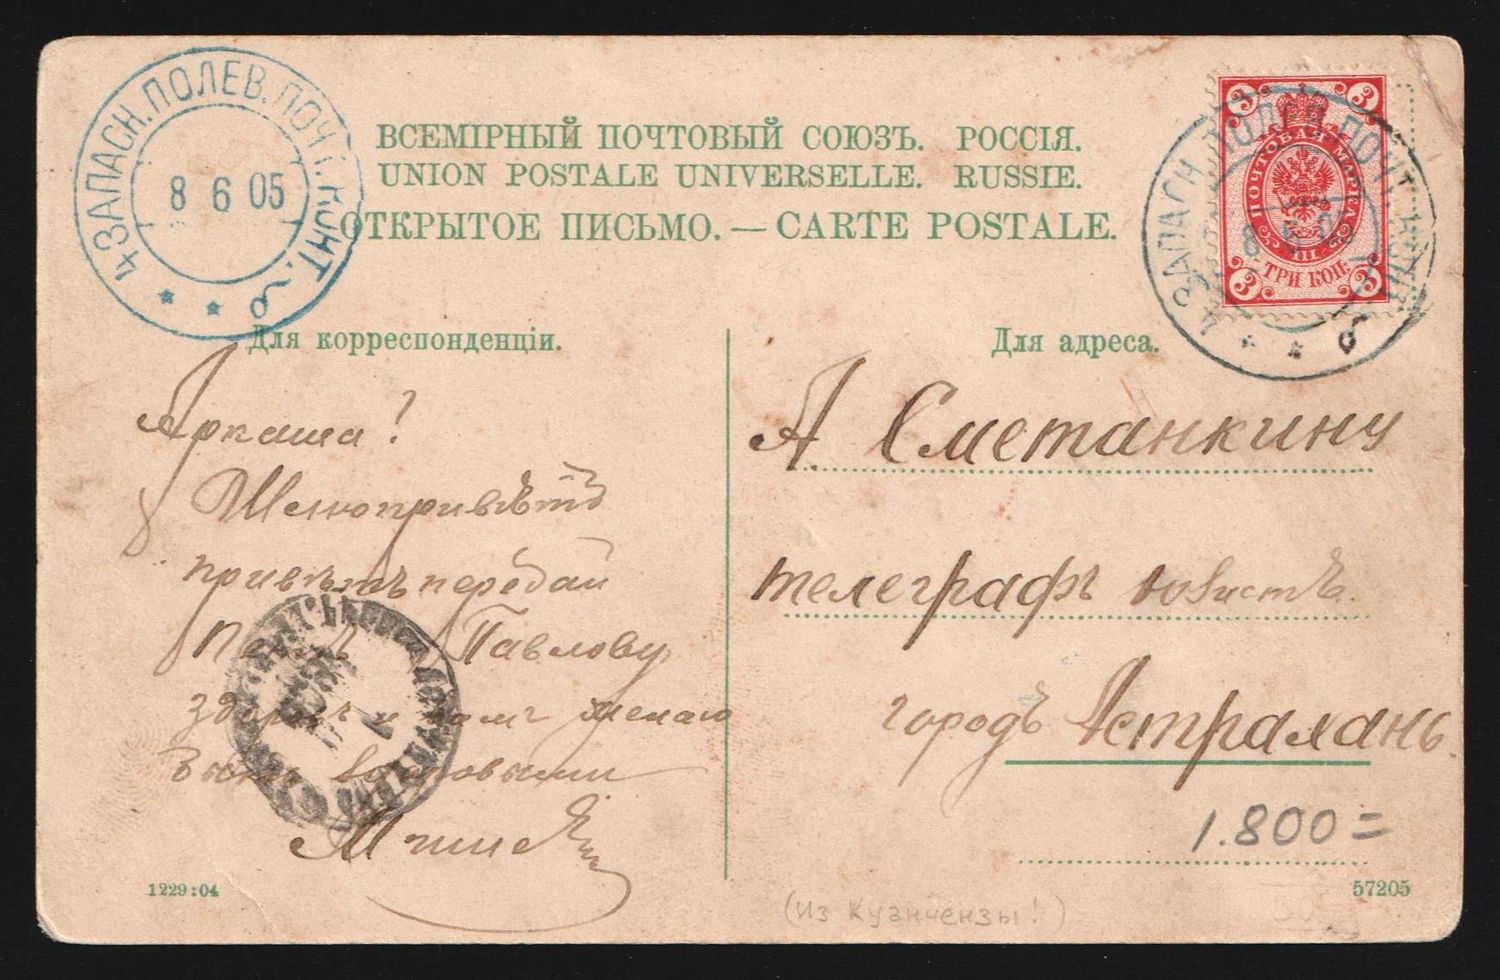 4 ЗАПАСН. ПОЛЕВ. ПОЧТ. КОНТ.
8 6 05
ВСЕМІРНЫЙ ПОЧТОВЫЙ СОЮЗЪ. РОССІЯ.
UNION POSTALE UNIVERSELLE. RUSSIE.
ОТКРЫТОЕ ПИСЬМО. — CARTE POSTALE.
3 3
ПОЧТОВАЯ МАРКА
ТРИ КОП.
3 3
4 ЗАПАСН. ПОЛЕВ. ПОЧТ.
8 6 05
Для корреспонденціи.
Аркаша!
привѣтъ передай
Павлову
желаю
быть здоровыми
Для адреса.
А Сметанкину
телеграфъ
городъ Астрахань
1.800=
1229:04
57205
(из Куанчензы!)